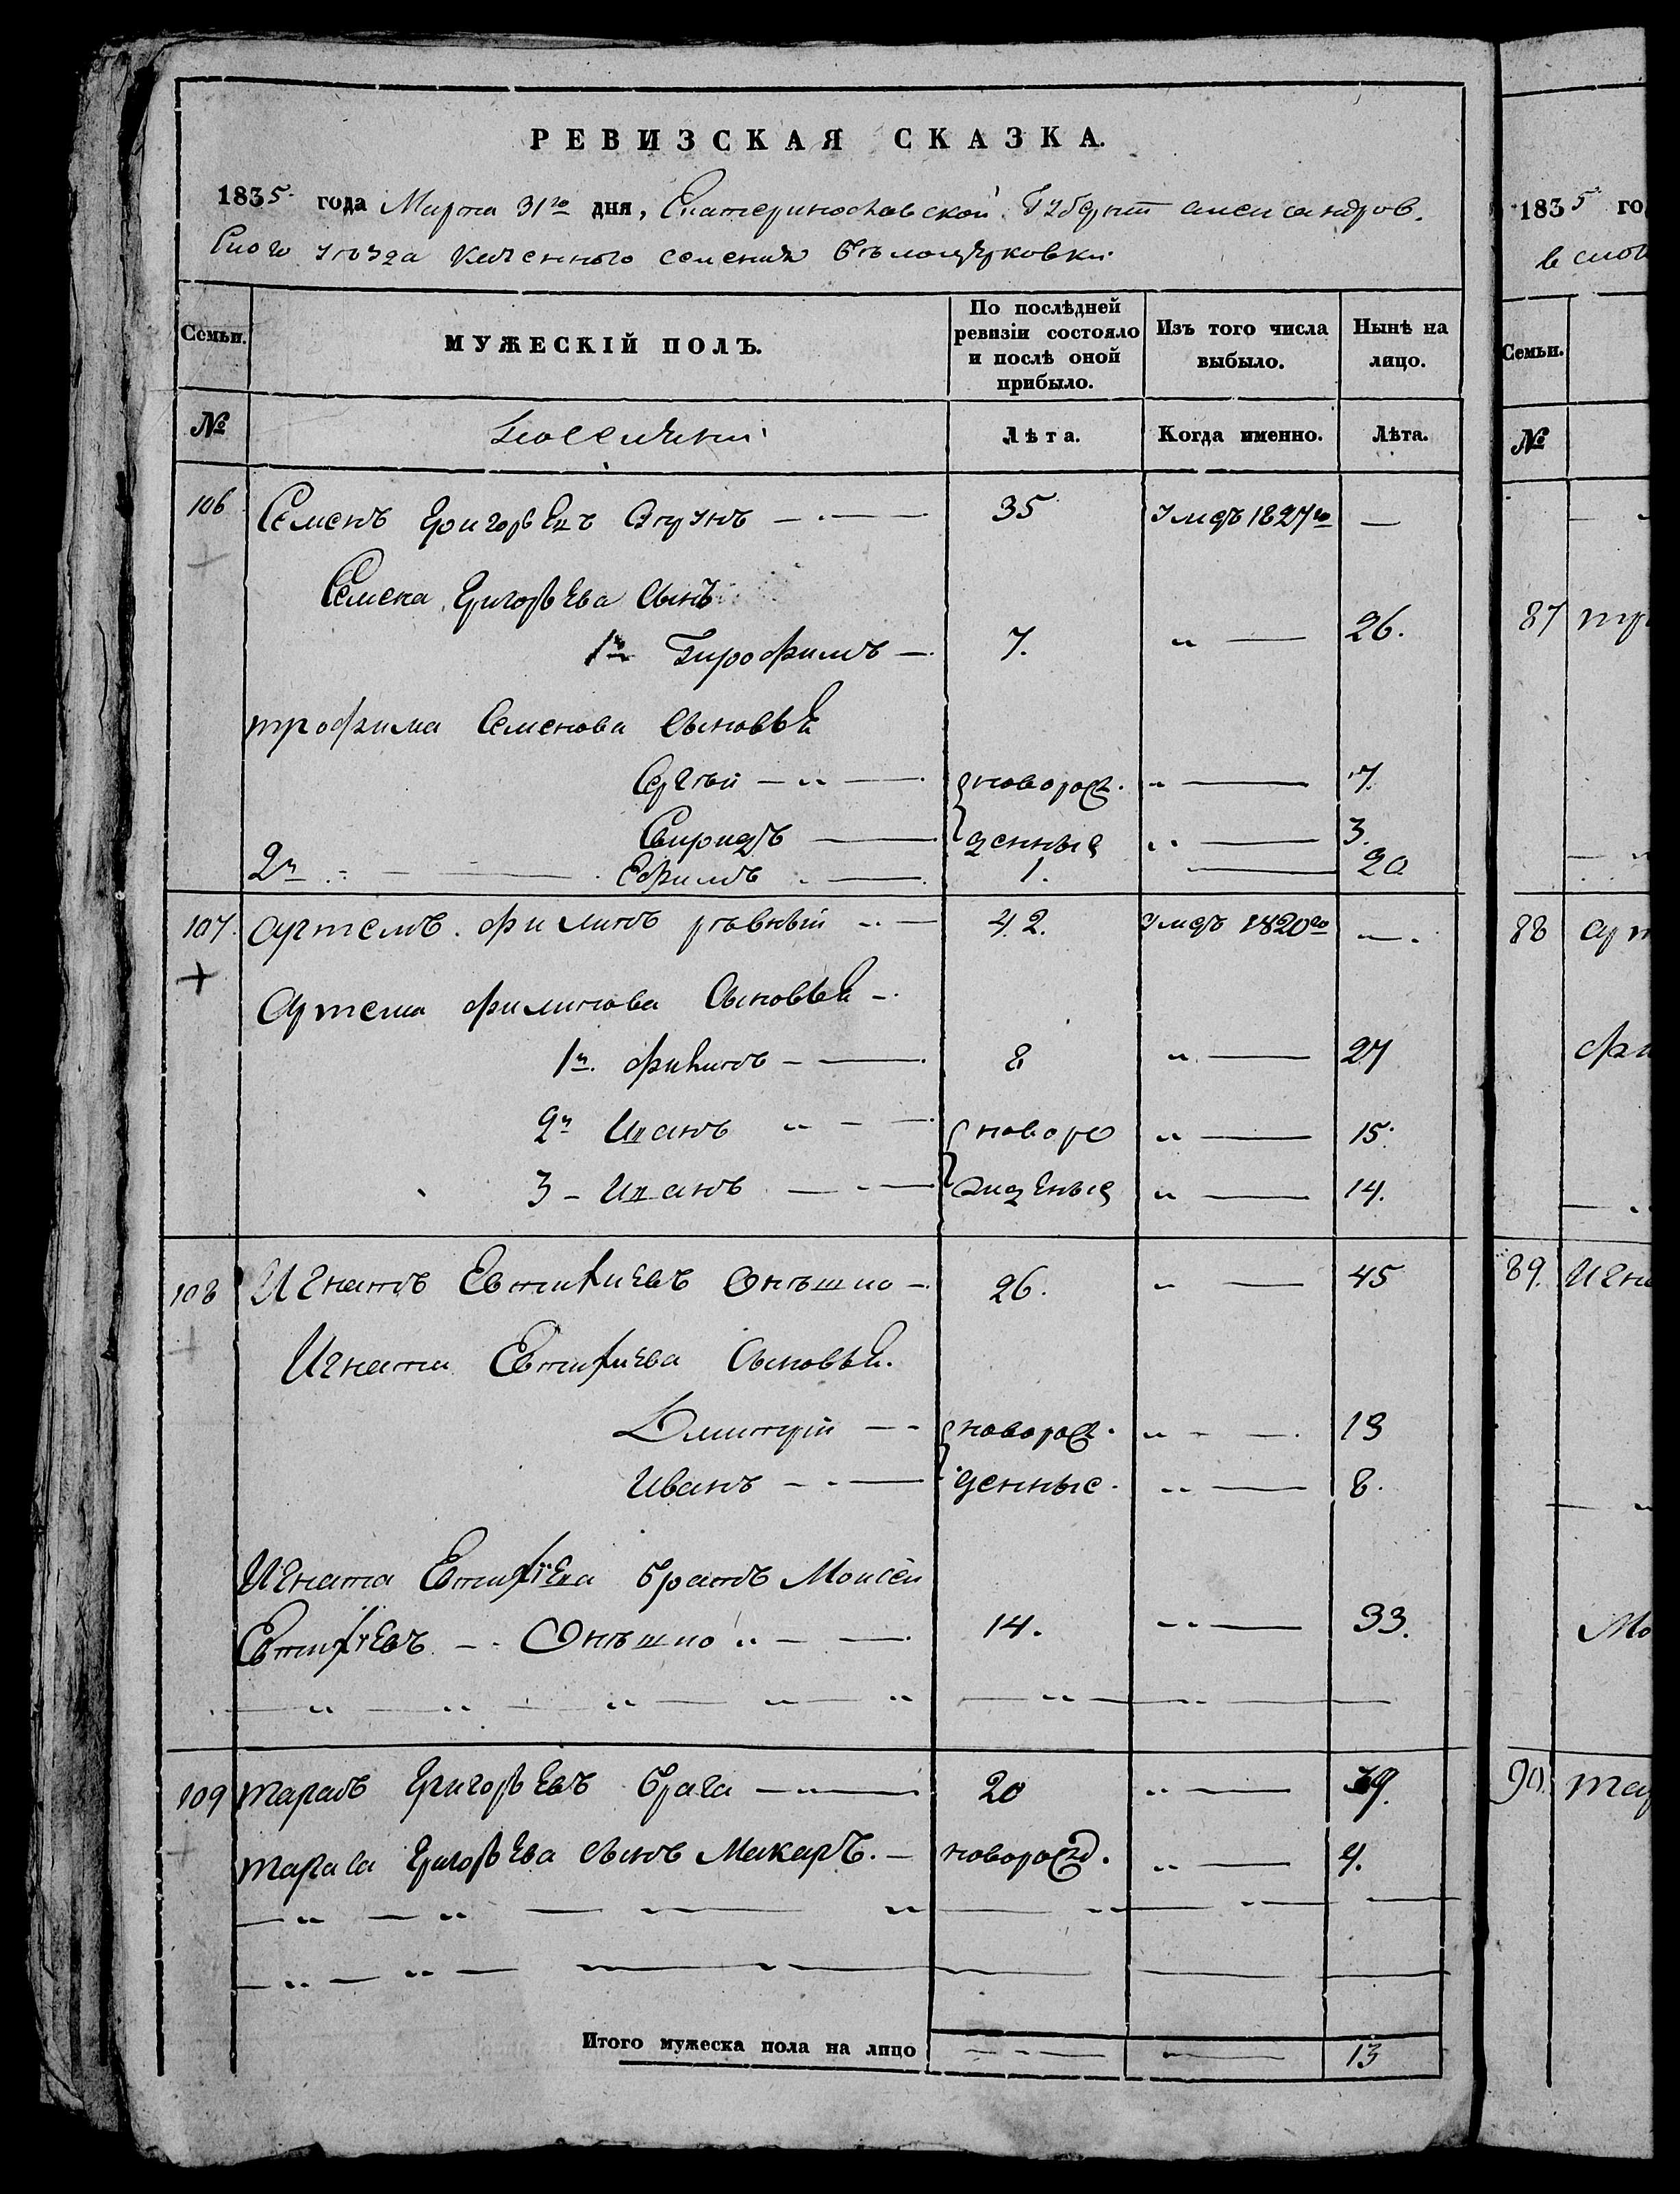 РЕВИЗСКАЯ СКАЗКА.
1835. года Марта 31го дня, Екатеринославской Губерніи Александров.
скаго уѣзда казеннаго селенія Бѣлоцерковки.
Семьи.
МУЖЕСКІЙ ПОЛЪ.
По послѣдней ревизіи состояло и послѣ оной прибыло.
Изъ того числа выбыло.
Нынѣ на лицо.
№
Лѣта.
Когда именно.
Лѣта.
106 Семенъ Григорьевъ 35 умеръ 1827го —
Семена Григорьева Сынъ
1й Трофимъ — 7. „ — 26.
трофима Семенова Сыновья
Сергѣй — „ — новорож. „ — 7.
Свиридъ — денные „ — 3.
2й — Ефимъ — 1. — 20
107. Артемъ филиповъ рѣвный „ — 42. умеръ 1820го —.
Артема филипова Сыновья —.
1й. филипъ — 8 „ — 27
2й Иванъ „ — новоро „ — 15.
3 — Иванъ — жденые „ — 14.
108 Игнатъ Евтихиевъ Онѣшко — 26. „ — 45
Игната Евтихиева Сыновья.
Дмитрій — новорож. „ — 13
Иванъ — денные. „ — 8.
Игната Евтихіева братъ Моисей
Евтихіевъ — Онѣшко „ — 14. „ — 33.
109 тарасъ Григорьевъ брага — 20 „ — 39.
тараса Григорьева сынъ Макаръ. — новорожд. „ — 4.
Итого мужеска пола на лицо 13
1835 го
Семьи.
№
87
88
89.
90.